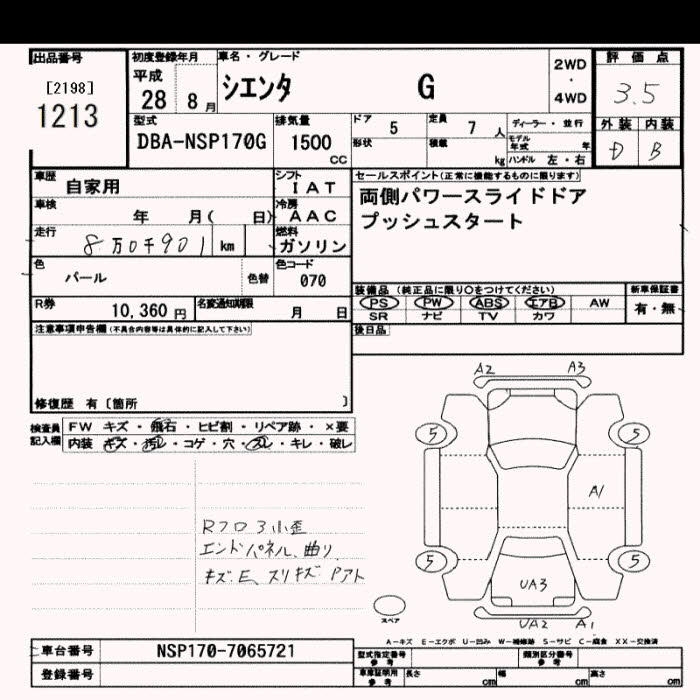 出品番号
[2198]
1213
初度登録年月
平成
28 8 月
車名・グレード
シエンタ G
2WD
・
4WD
評価点
3.5
外装 内装
D B
型式
DBA-NSP170G
排気量
1500
CC
ドア 5
定員 7 人
形状
積載 kg
ディーラー・並行
モデル年式 年
ハンドル 左・右
車歴 自家用
シフト IAT
セールスポイント(正常に機能するものに限ります)
両側パワースライドドア
プッシュスタート
車検 年 月( 日)
冷房 AAC
走行 8万0千901 km
燃料 ガソリン
色 パール 色替
色コード 070
装備品 (純正品に限り○をつけてください)
PS PW ABS エアB AW
SR ナビ TV カワ
新車保証書
有・無
R券 10,360 円
名変通知期限 月 日
後日品
注意事項申告欄(不具合内容等は具体的に記入して下さい)
修復歴 有 [箇所 ]
検査員
記入欄
FW キズ・飛石・ヒビ割・リペア跡・×要
内装 キズ・汚レ・コゲ・穴・スレ・キレ・破レ
Rフロア小歪
エンドパネル、曲り、
キズ、E、スリキズ Pアト
A2 A3
5 5
A1
5 5
UA3
UA2 A1
スペア
A-キズ E-エクボ U-凹み W-補修跡 S-サビ C-腐食 XX-交換済
車台番号 NSP170-7065721
登録番号
型式指定番号
参考
類別区分番号
参考
車庫証明用
参考
長さ cm
幅 cm
高さ cm